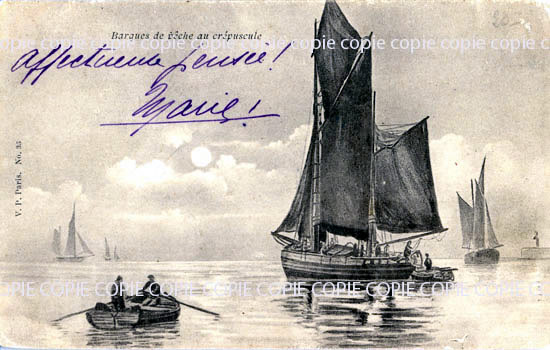 Barques de pêche au crépuscule
20
COPIE COPIE COPIE COPIE COPIE COPIE COPIE COPIE COPIE
Affectueuse pensée!
Marie!
V. P. Paris. No. 35
COPIE COPIE COPIE COPIE COPIE COPIE COPIE COPIE COPIE
COPIE COPIE COPIE COPIE COPIE COPIE COPIE COPIE COPIE